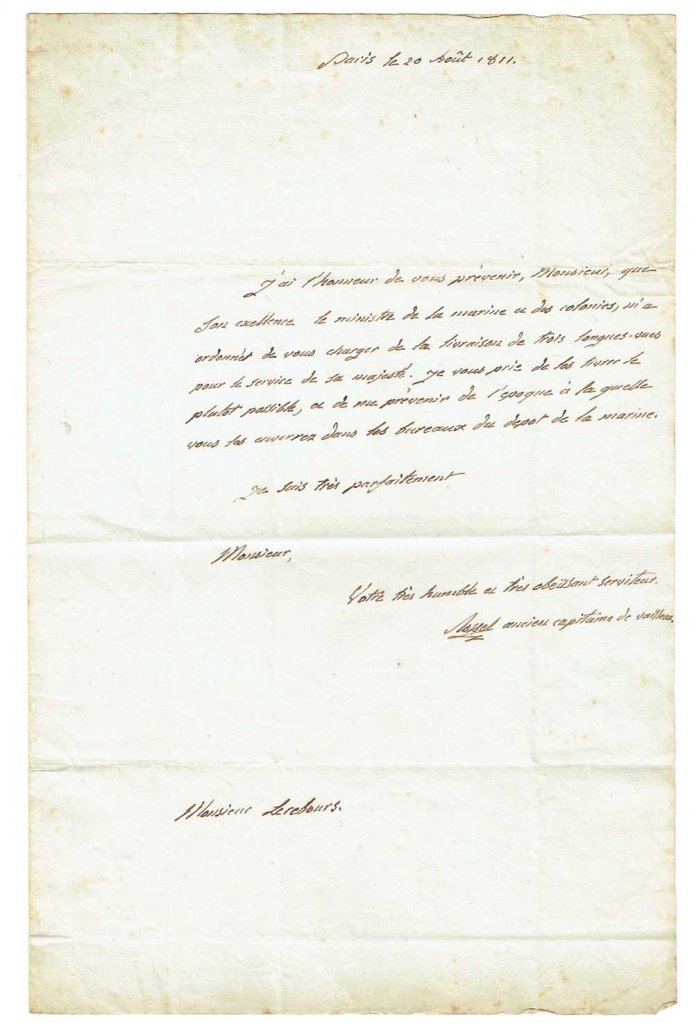 Paris le 20 Août 1811.
J'ai l'honneur de vous prévenir, Monsieur, que
son exellence le ministre de la marine et des colonies, m'a
ordonnér de vous charger de la livraison de trois longues-vues
pour le service de sa majesté. je vous prie de les livrer le
plutot possible, et de me prévenir de l'époque à la quelle
vous les enverrez dans les bureaux du depot de la marine.
Je suis très parfaitement
Monsieur,
Votre très humble et très obeissant serviteur.
ancien capitaine de vaisseau.
Monsieur Lerebours.